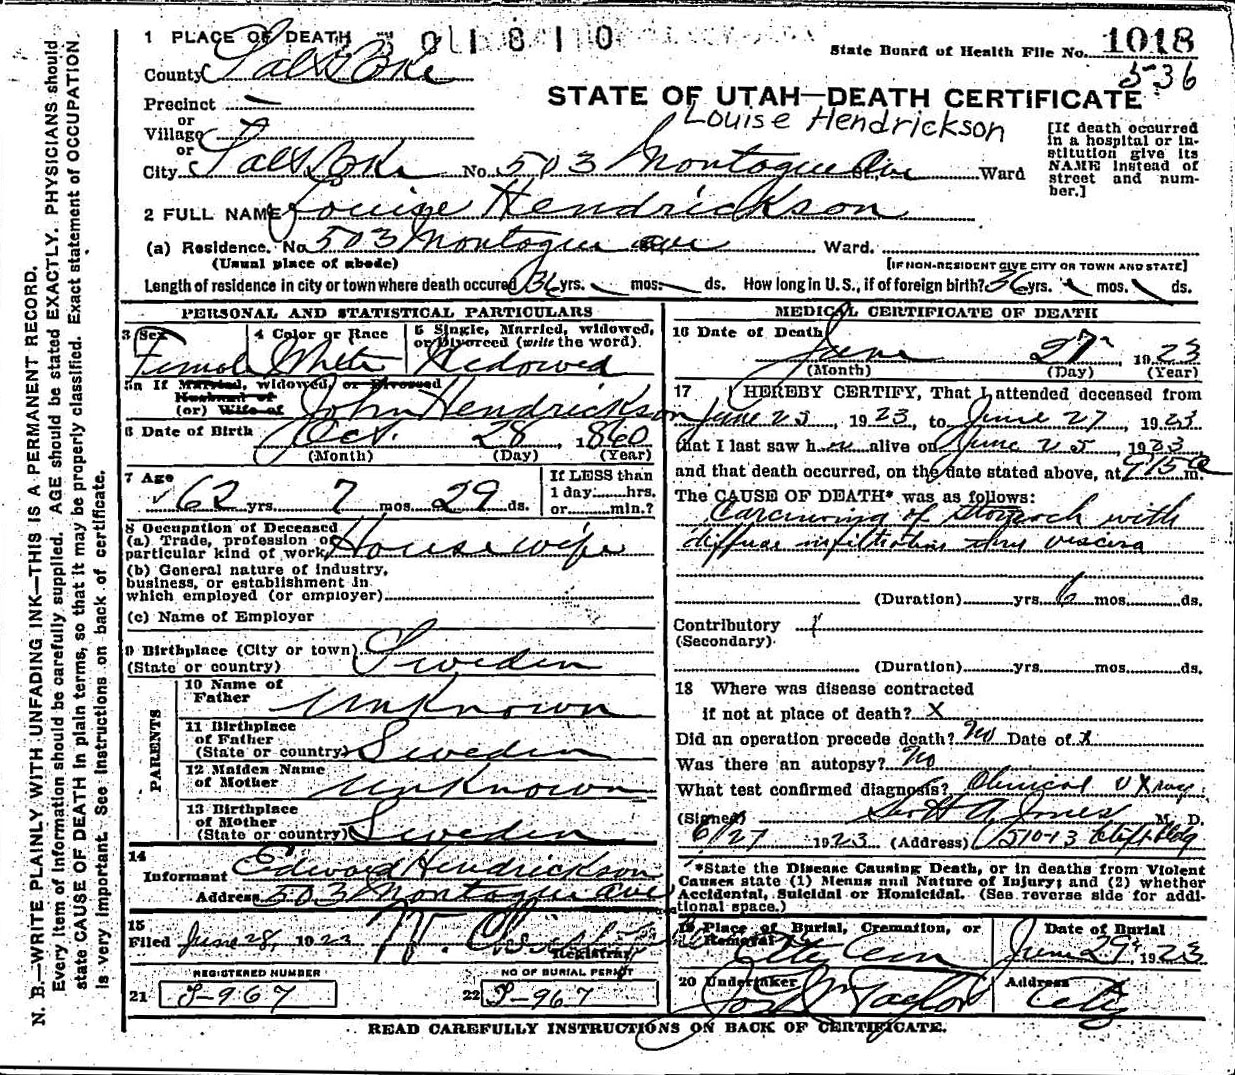 1 PLACE OF DEATH
State Board of Health File No. 1018
5-36
County Salt Lake
Precinct —
or
Village
or
STATE OF UTAH—DEATH CERTIFICATE
Louise Hendrickson
[If death occurred in a hospital or institution give its NAME instead of street and number.]
City Salt Lake No. 503 Montague Ave Ward
2 FULL NAME Louise Hendrickson
(a) Residence. No. 503 Montague ave Ward.
(Usual place of abode)
[IF NON-RESIDENT GIVE CITY OR TOWN AND STATE]
Length of residence in city or town where death occured 36 yrs. mos. ds. How long in U.S., if of foreign birth? 36 yrs. mos. ds.
PERSONAL AND STATISTICAL PARTICULARS
3 Sex
Female
4 Color or Race
White
5 Single, Married, widowed, or Divorced (write the word).
Widowed
5a If Married, widowed, or Divorced
Husband of
(or) Wife of John Hendrickson
6 Date of Birth Oct. 28, 1860
(Month) (Day) (Year)
7 Age
62 yrs. 7 mos. 29 ds.
If LESS than
1 day......hrs.
or......min.?
8 Occupation of Deceased
(a) Trade, profession or particular kind of work Housewife
(b) General nature of industry, business, or establishment in which employed (or employer)
(c) Name of Employer
9 Birthplace (City or town)
(State or country) Sweden
PARENTS
10 Name of Father Unknown
11 Birthplace of Father
(State or country) Sweden
12 Maiden Name of Mother Unknown
13 Birthplace of Mother
(State or country) Sweden
14
Informant Edward Hendrickson
Address 503 Montague Ave
15
Filed June 28, 1923
Registrar
REGISTERED NUMBER
21 S-967
NO OF BURIAL PERMIT
22 S-967
MEDICAL CERTIFICATE OF DEATH
16 Date of Death
June 27 1923
(Month) (Day) (Year)
17 I HEREBY CERTIFY, That I attended deceased from
June 23, 1923, to June 27, 1923
that I last saw her alive on June 25, 1923
and that death occurred, on the date stated above, at 9 15 a m.
The CAUSE OF DEATH* was as follows:
Carcinoma of Stomach with
diffuse infiltration thru viscera
(Duration) yrs. 6 mos. ds.
Contributory
(Secondary)
(Duration) yrs. mos. ds.
18 Where was disease contracted
if not at place of death? X
Did an operation precede death? No Date of X
Was there an autopsy? No
What test confirmed diagnosis? Clinical & Xray
(Signed) A. Jones M. D.
6/27 1923 (Address) 510-13
*State the Disease Causing Death, or in deaths from Violent Causes state (1) Menus and Nature of Injury; and (2) whether Accidental, Suicidal or Homicidal. (See reverse side for additional space.)
19 Place of Burial, Cremation, or Removal
City Cem
Date of Burial
June 29, 1923
20 Undertaker
Jos Wm Taylor
Address
City
READ CAREFULLY INSTRUCTIONS ON BACK OF CERTIFICATE.
N. B.—WRITE PLAINLY WITH UNFADING INK—THIS IS A PERMANENT RECORD.
Every item of information should be carefully supplied. AGE should be stated EXACTLY. PHYSICIANS should
state CAUSE OF DEATH in plain terms, so that it may be properly classified. Exact statement of OCCUPATION
is very important. See instructions on back of certificate.